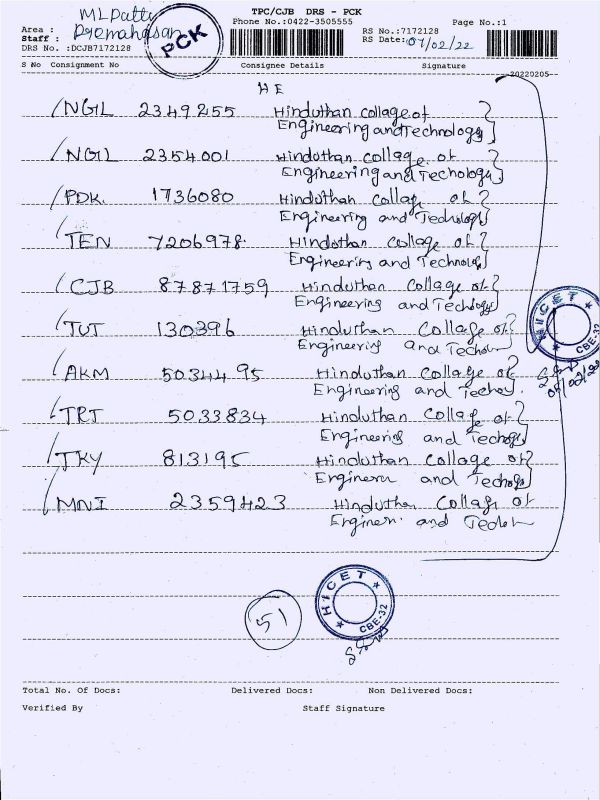 TPC/CJB DRS - PCK
Area : MLPatti
Phone No.:0422-3505555
Page No.:1
Staff :
RS No.:7172128
DRS No. :DCJB7172128
RS Date: 07/02/22
PCK
S No Consignment No Consignee Details Signature
20220205
HE
NGIL 2349255 Hinduthan collage of
Engineering and Technology
NGIL 2354001 Hinduthan collage of
Engineering and Techology
PDK 1736080 Hinduthan collage of
Engineering and Technology
TEN 7206978 Hinduthan collage of
Engineering and Technology
CJB 87871759 Hinduthan Collage of
Engineering and Technology
TUT 130396 Hinduthan Collage of
Engineering and Techon
AKM 5034495 Hinduthan Collage of
Engineering and
TRT 5033834 Hinduthan Collage of
Engineering and
TKY 813195 Hinduthan Collage of
and
MNI 2359423 Hinduthan Collage of
and
HICET
CBE-32
07/02/22
51
HICET
CBE-32
Total No. Of Docs: Delivered Docs: Non Delivered Docs:
Verified By Staff Signature